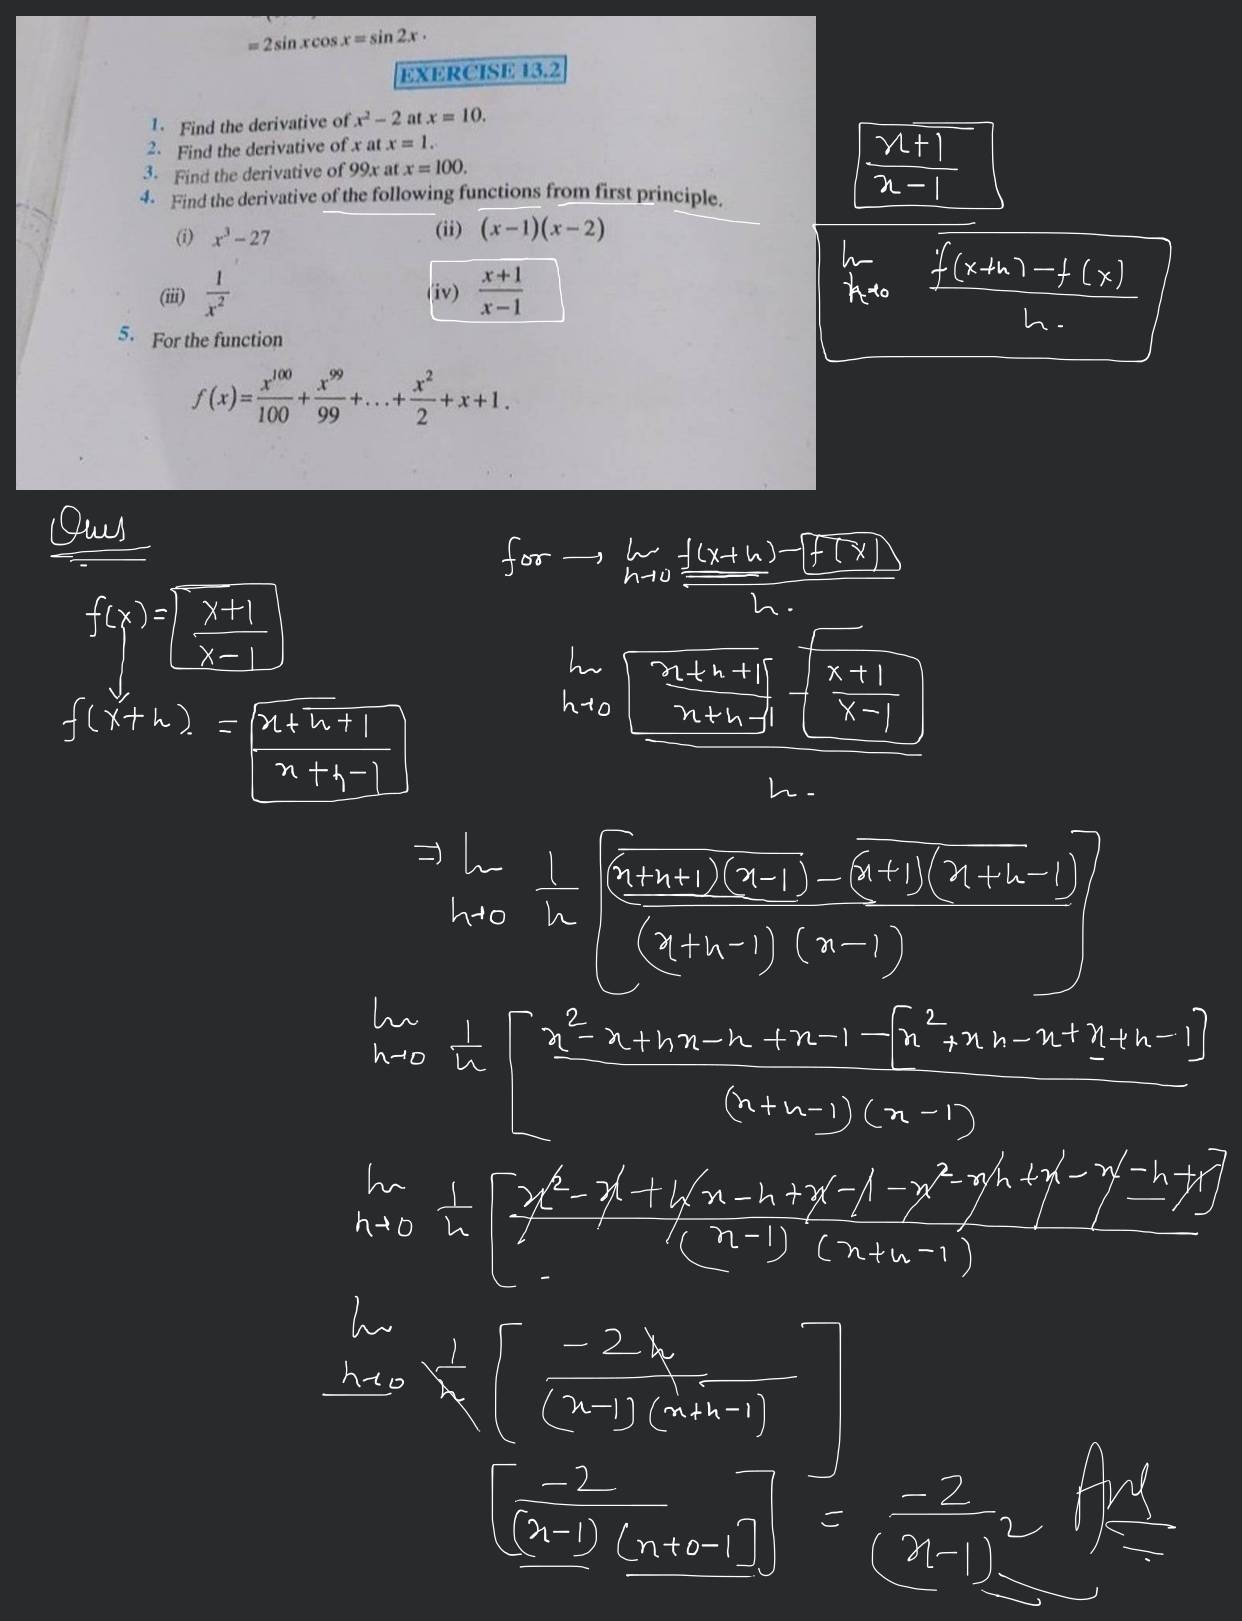 = 2 sin x cos x = sin 2x .
EXERCISE 13.2
1. Find the derivative of x² – 2 at x = 10.
2. Find the derivative of x at x = 1.
3. Find the derivative of 99x at x = 100.
4. Find the derivative of the following functions from first principle.
(i) x³ – 27 (ii) (x – 1)(x – 2)
(iii) 1/x² (iv) x+1/x–1
5. For the function
f(x) = x¹⁰⁰/100 + x⁹⁹/99 + . . . + x²/2 + x + 1 .
x+1/x-1
lim h→0 f(x+h) - f(x)/h.
Ques
f(x) = x+1/x-1
f(x+h) = x+h+1/x+h-1
for → lim h→0 f(x+h) - f(x)/h.
lim h→0 x+h+1/x+h-1 - x+1/x-1
h.
⇒ lim h→0 1/h [(x+h+1)(x-1) - (x+1)(x+h-1)/(x+h-1)(x-1)]
lim h→0 1/h [x² - x + hx - h + x - 1 - [x² + xh - x + x + h - 1]/(x+h-1)(x-1)
lim h→0 1/h [x² - x + hx - h + x - 1 - x² - xh + x - x - h + 1]/(x-1)(x+h-1)
lim h→0 1/h [-2h/(x-1)(x+h-1)]
[-2/(x-1)(x+0-1] = -2/(x-1)² Ans